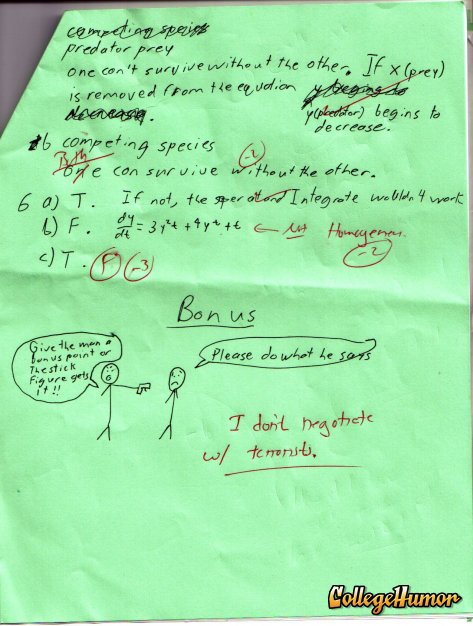 competing species
predator prey
one can't survive without the other. If x(prey)
is removed from the equation y begins to
decreasing. y(predator) begins to
decrease.
b competing species
Both
one can survive without the other. -2
6 a) T. If not, the Integrate wouldn't work
b) F. dy/dt = 3y²t + 4yt + t ← not Homogeneous
-2
c) T. F -3
Bonus
Give the man a
bonus point or
The stick
Figure gets
it!!
Please do what he says
I don't negotiate
w/ terrorists.
CollegeHumor